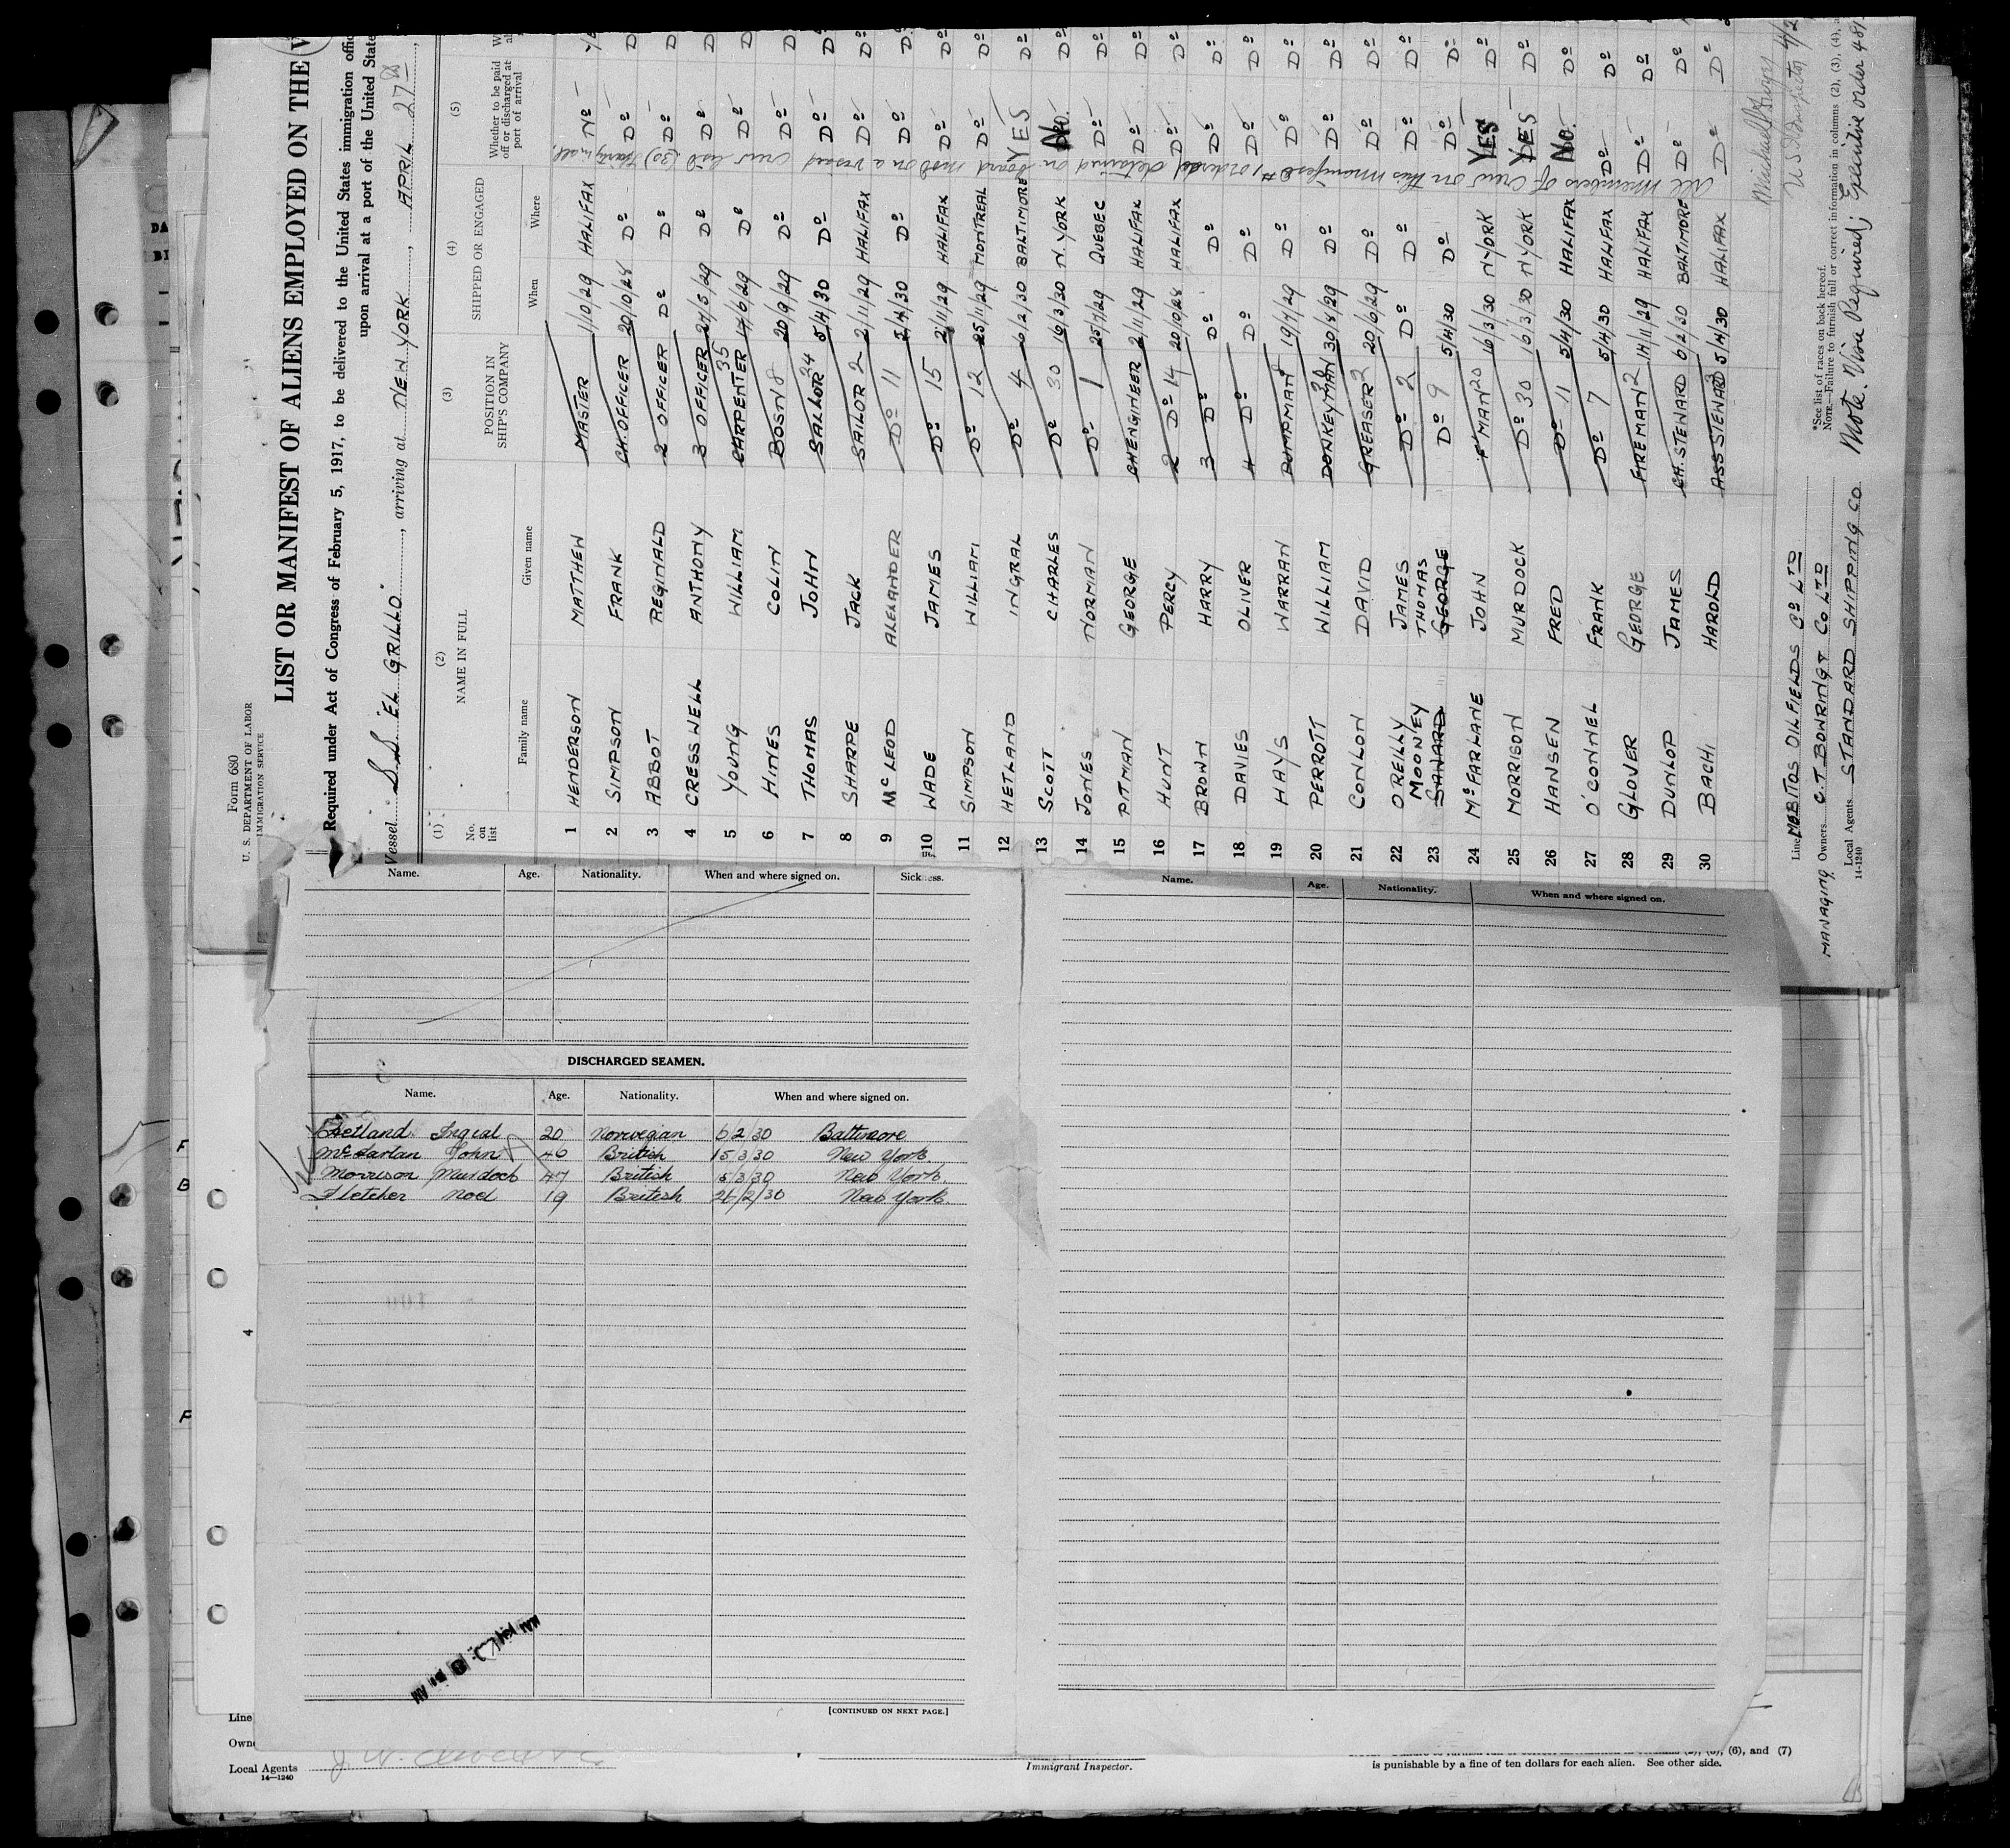 Form 680
U. S. DEPARTMENT OF LABOR
IMMIGRATION SERVICE
LIST OR MANIFEST OF ALIENS EMPLOYED ON THE
Required under Act of Congress of February 5, 1917, to be delivered to the United States immigration
upon arrival at a port of the United
Vessel S.S. "EL GRILLO", arriving at NEW YORK, APRIL 27th
(1) (2) (3) (4) (5)
No. on list NAME IN FULL POSITION IN SHIP'S COMPANY SHIPPED OR ENGAGED Whether to be paid off or discharged at port of arrival
Family name Given name When Where
1 HENDERSON MATTHEW MASTER 1/10/29 HALIFAX No
2 SIMPSON FRANK CH. OFFICER 20/10/28 Do Do Do
3 ABBOT REGINALD 2 OFFICER Do Do Do Do
4 CRESSWELL ANTHONY 3 OFFICER 24/5/29 Do Do Do
5 YOUNG WILLIAM CARPENTER 35 14/6/29 Do Do Do
6 HINES COLIN BOSN 8 20/9/29 Do Do Do
7 THOMAS JOHN SAILOR 24 5/4/30 Do Do Do
8 SHARPE JACK SAILOR 2 2/11/29 HALIFAX Do Do
9 McLEOD ALEXANDER Do 11 5/4/30 Do Do Do
10 WADE JAMES Do 15 2/11/29 HALIFAX Do Do
11 SIMPSON WILLIAM Do 12 25/11/29 MONTREAL Do Do
12 HETLAND INGRAL Do 4 6/2/30 BALTIMORE YES Do
13 SCOTT CHARLES Do 30 16/3/30 N. YORK No. Do
14 JONES NORMAN Do 1 25/7/29 QUEBEC Do Do
15 PITMAN GEORGE CHENGINEER 2/11/29 HALIFAX Do Do
16 HUNT PERCY 2 Do 14 20/10/28 HALIFAX Do Do
17 BROWN HARRY 3 Do Do Do Do Do
18 DAVIES OLIVER 4 Do Do Do Do Do
19 HAYS WARRAN PUMPMAN 19/7/29 Do Do Do
20 PERROTT WILLIAM DONKEYMAN 30/8/29 Do Do Do
21 CONLON DAVID GREASER 2 20/6/29 Do Do Do
22 OREILLY JAMES Do 2 Do Do Do Do
23 MOONEY THOMAS SANARD GEORGE Do 9 5/4/30 Do Do Do
24 McFARLANE JOHN F'MAN 20 16/3/30 N YORK YES Do
25 MORRISON MURDOCK Do 30 16/3/30 N YORK YES Do
26 HANSEN FRED Do 11 5/4/30 HALIFAX No. Do
27 O'CONNEL FRANK Do 7 5/4/30 HALIFAX Do Do
28 GLOVER GEORGE FIREMAN 2 14/11/29 HALIFAX Do Do
29 DUNLOP JAMES CH. STEWARD 6/2/30 BALTIMORE Do Do
30 BACHI HAROLD ASS STEWARD 5/4/30 HALIFAX Do Do
All members of crew on this manifest, ordered detained on board
Line LOBITOS OILFIELDS Co LTD
MANAGING Owners C.T BOWRING & Co LTD
Local Agents STANDARD SHIPPING CO
14-1240
*See list of races on back hereof.
NOTE.—Failure to furnish full or correct information in columns (2), (3), (4),
Note. Visa Required; Executive order
U S Inspector
Name. Age. Nationality. When and where signed on. Sickness.
Name. Age. Nationality. When and where signed on.
DISCHARGED SEAMEN.
Name. Age. Nationality. When and where signed on.
Hetland Ingral 20 Norwegian 6/2/30 Baltimore
McFarlan John 46 British 15/3/30 New York.
Morrison Murdoch 47 British 15/3/30 New York.
Fletcher Noel 19 British 26/2/30 New York.
[CONTINUED ON NEXT PAGE.]
4
Line
Local Agents
14—1240
Immigrant Inspector.
(6), and (7)
is punishable by a fine of ten dollars for each alien. See other side.